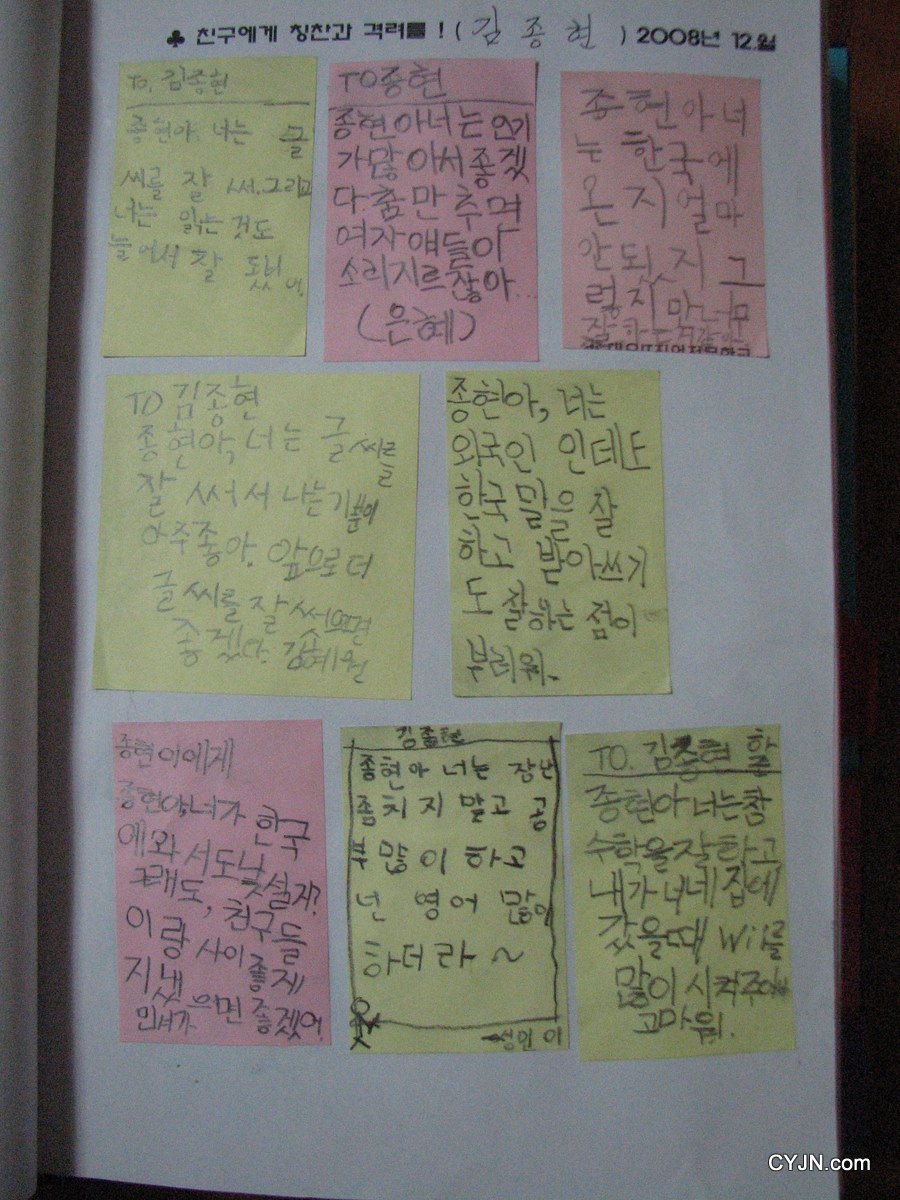 ♣ 친구에게 칭찬과 격려를 ! ( 김종현 ) 2008년 12.일
To, 김종현
종현아 너는 글
씨를 잘 써. 그리고
너는 읽는 것도
늘어서 잘 됬어.
TO종현
종현아너는 인기
가많아서좋겠
다춤만추며
여자얘들이
소리지르잖아...
(은혜)
종현아너
는 한국에
온지얼마
안되지 그
렇지만너무
잘하는
TO 김종현
종현아, 너는 글씨를
잘 써서 나는기분이
아주좋아. 앞으로더
글씨를 잘 썼으면
좋겠다. 김혜원
종현아, 너는
외국인 인데도
한국말을 잘
하고 받아쓰기
도 잘하는 점이
부러워.
종현이에게
종현아,너가 한국
에와서도낯설지?
그래도, 친구들
이랑 사이좋게
지냈으면 좋겠어.
민서가
김종현
종현아 너는 장난
좀치지 말고 공
부많이 하고
넌 영어 많이
하더라~
성민이
TO. 김종현
종현아 너는참
수학을잘하고
내가 너네집에
갔을때 Wii를
많이 시켜주어
고마워.
CYJN.com